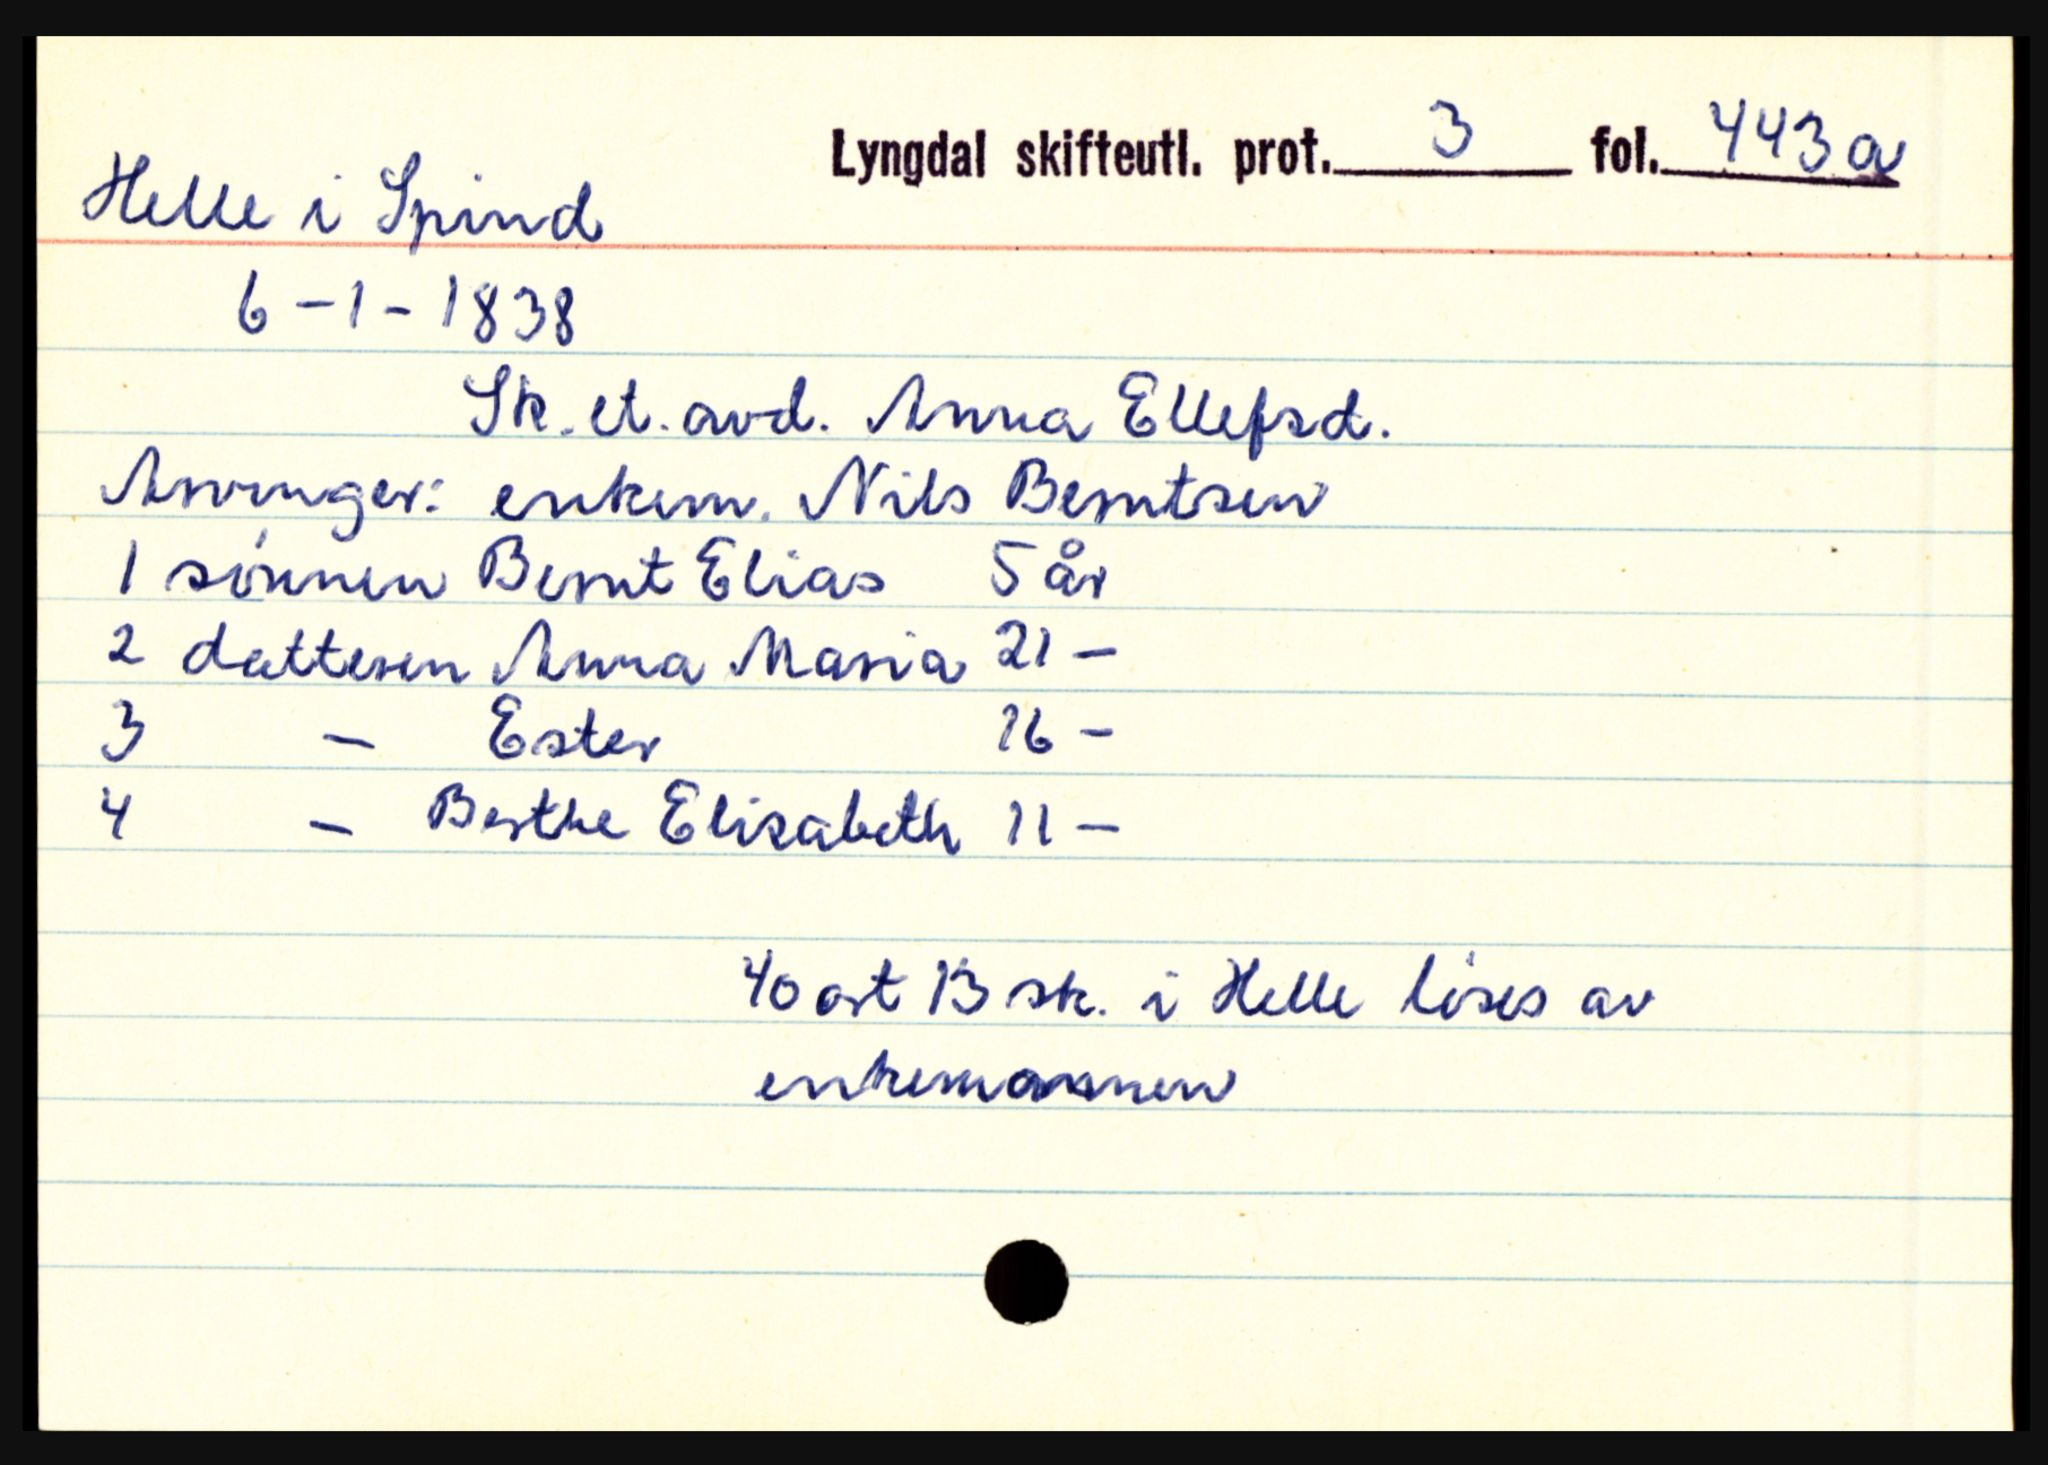 Lyngdal skifteutl. prot. 3 fol. 443a
Helle i Spind
6-1-1838
Sk. et. avd. Anna Ellefsd.
Arvinger: enkem. Nils Berntsen
1 sønnen Bernt Elias 5 år
2 datteren Anna Maria 21 -
3 - Ester 16 -
4 - Berthe Elisabeth 11 -
40 ort 13 sk. i Helle löses av
enkemannen